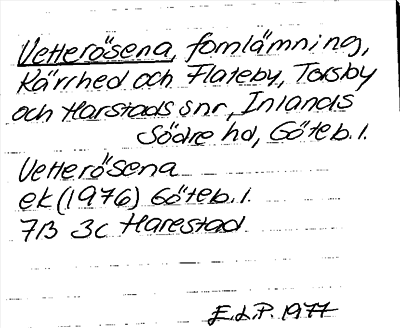 Vetterösena, fornlämning,
Kärrhed och Flateby, Torsby
och Harstads snr, Inlands
Södre hd, Göteb. l.
Vetterösena
ek (1976) Göteb. l.
7B 3c Harestad
E.d.P. 1977